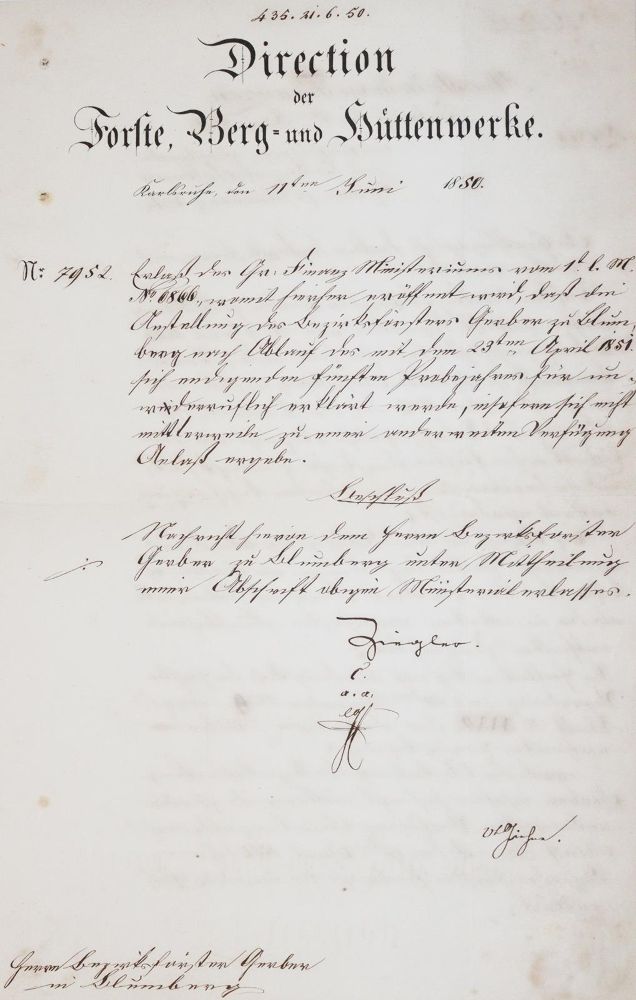 435. 21. 6. 50.
Direction
der
Forste, Berg- und Hüttenwerke.
Karlsruhe, den 11ten Juni 1850.
Nr. 7952. Erlaß des Gr. Finanz Ministeriums vom 1t. l. M.
No 6866, womit hierher eröffnet wird, daß die
Anstellung des Bezirksförsters Gerber zu Blum¬
berg nach Ablauf des mit dem 23ten April 1851
sich endigenden fünften Probejahres für un¬
wiederruflich erklärt werde, insofern sich nicht
mittlerweile zu einer anderweiten Verfügung
Anlaß ergebe.
Beschluß
Nachricht hievon dem Herrn Bezirksförster
Gerber zu Blumberg unter Mittheilung
einer Abschrift obigen Ministerialerlasses.
Ziegler.
a. a.
Herrn Bezirksförster Gerber
in Blumberg